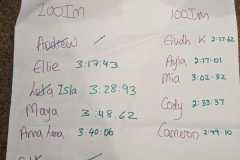 200Im
Andrew /
Ellie 3:17.43
Isla 3:28.93
Maya 3:48.62
Anna Lena 3:40.06
100Im
Eludh K 2:17.62
Ayla 2:17.01
Mia 3:02.82
Cody 2:33.37
Cameron 2:49.10